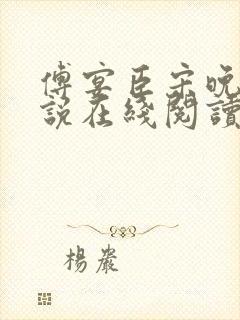 傅宴臣宋晚
説在綫閱讀
楊巖